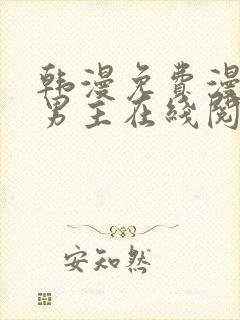 韩漫免费漫
男主在线阅
安知然